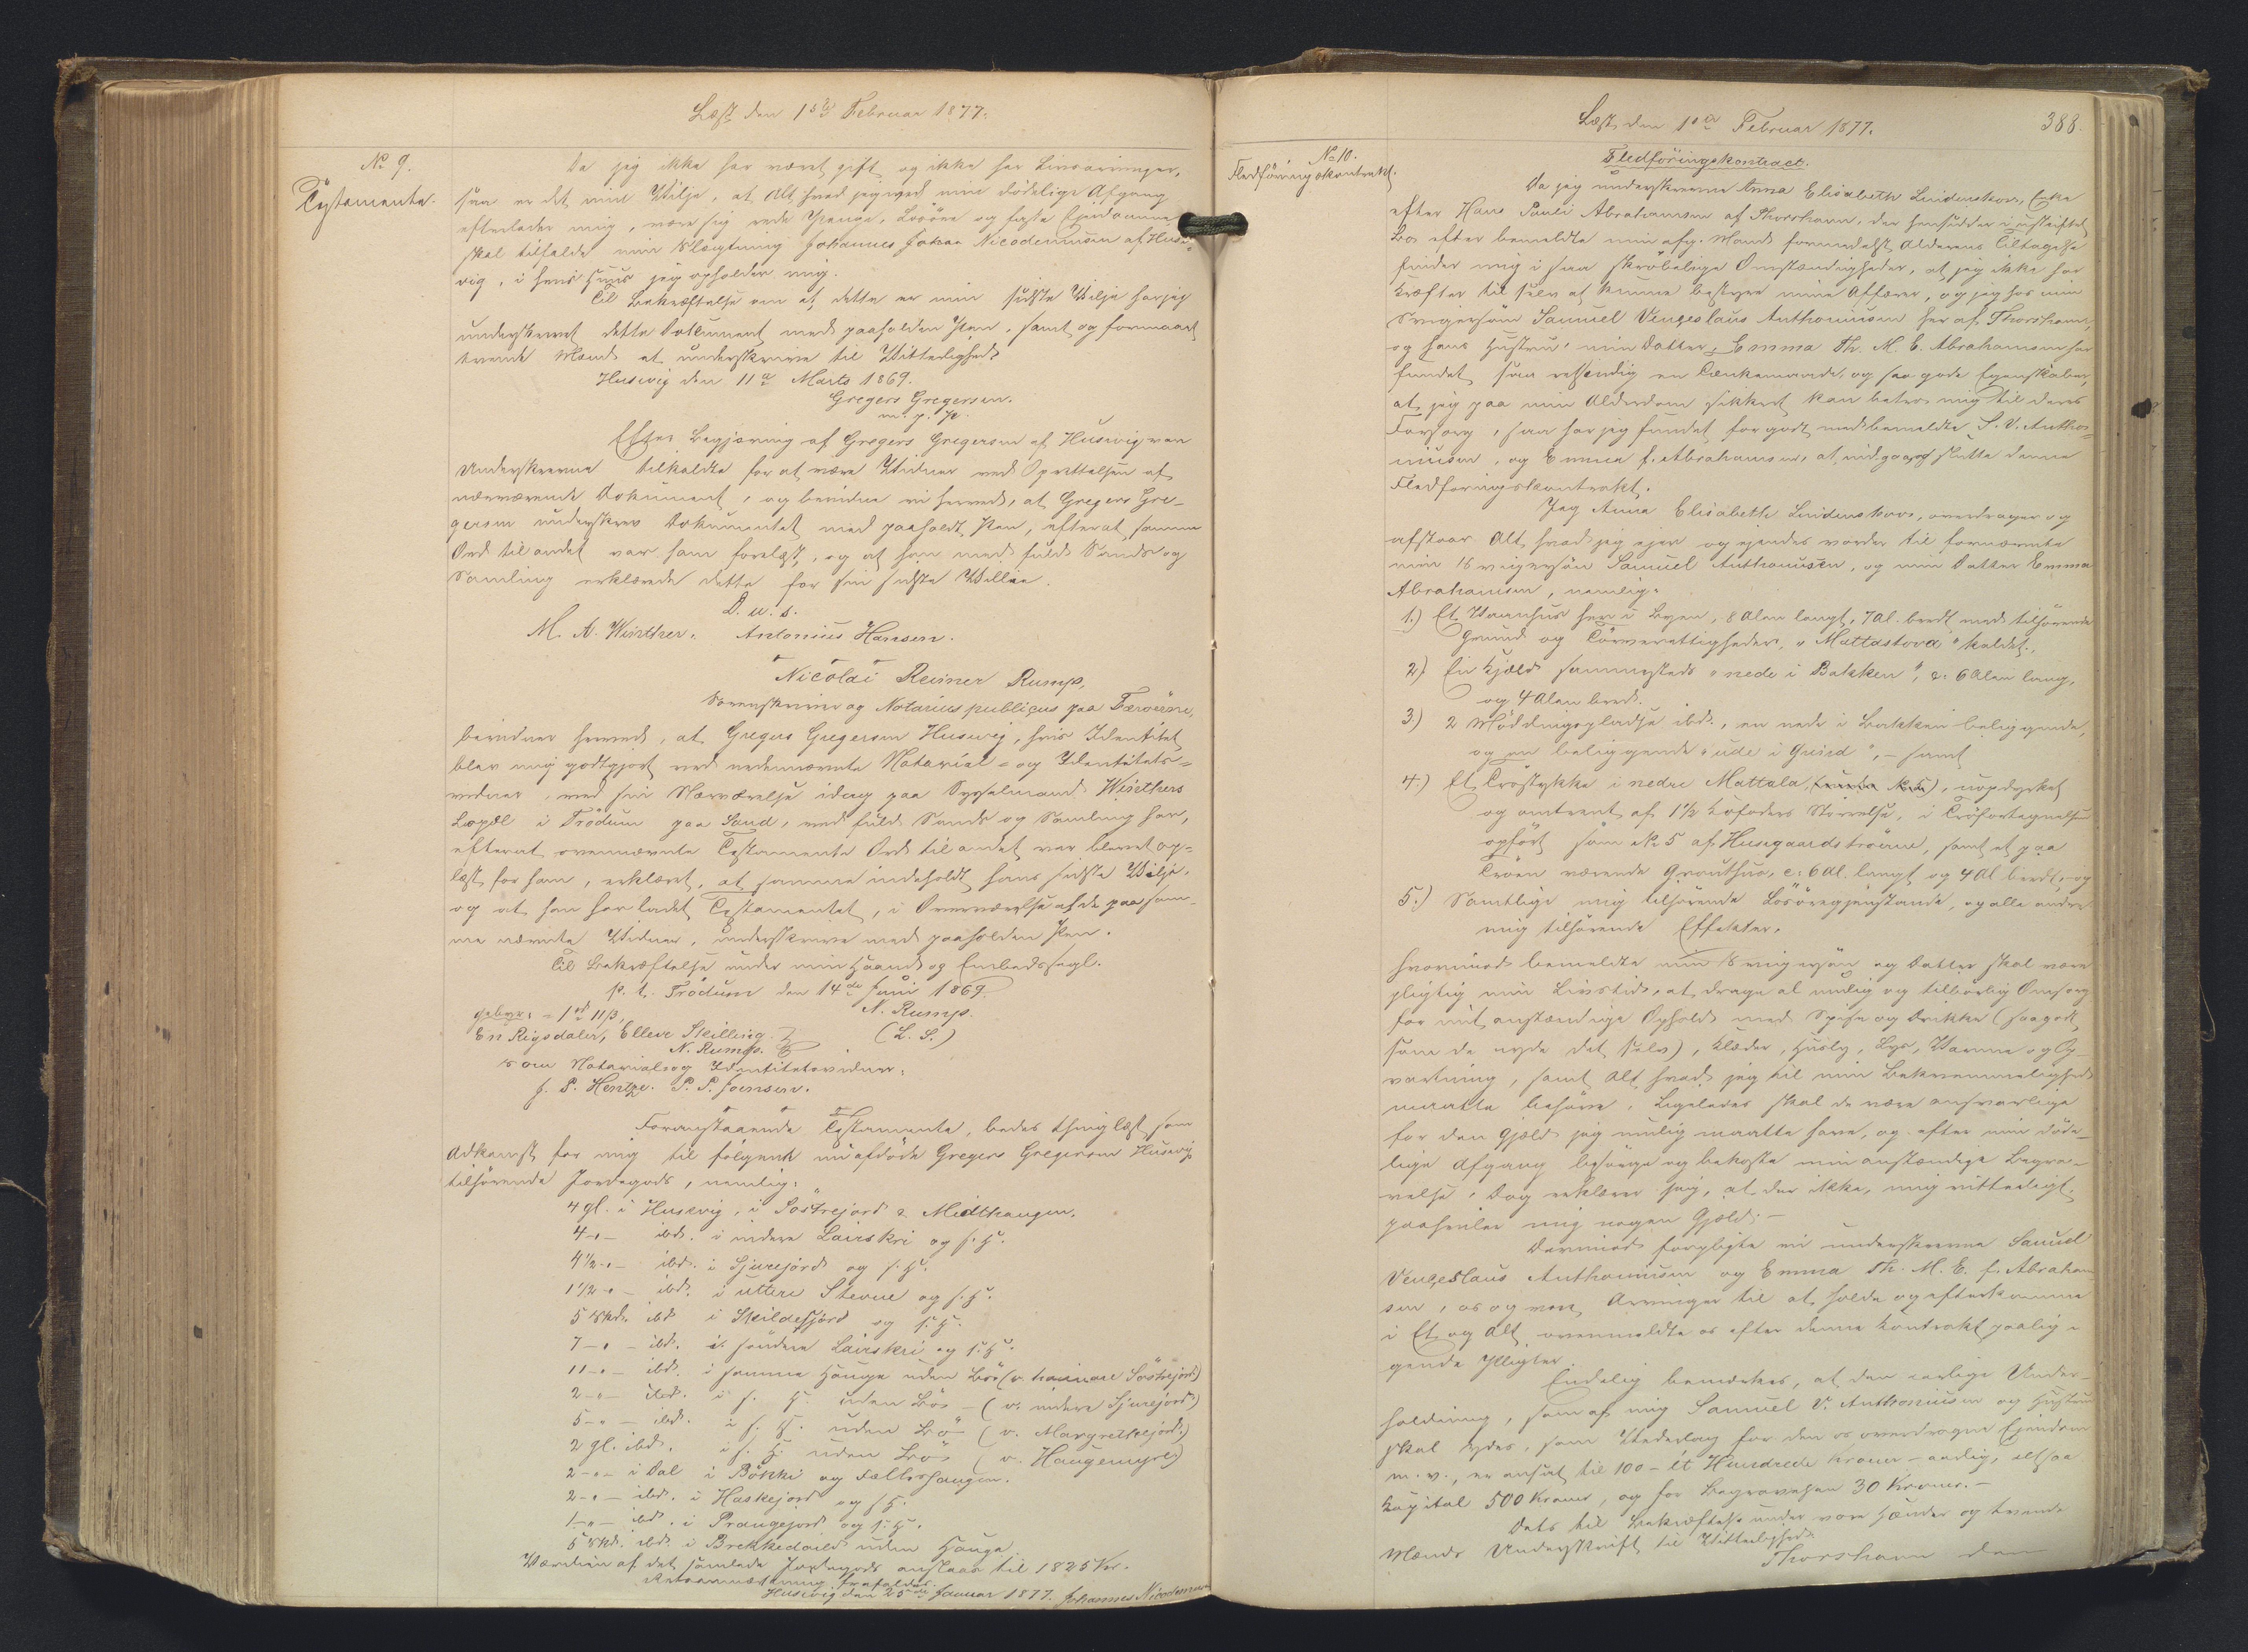 Læst den 1ste Februar 1877.
No 9.
Testamente.
Da jeg ikke har været gift og ikke har Livsarvinger,
saa er det min Villje, at Alt hvad jeg ved min dödelige Afgang
efterlader mig, være sig rede Penge, Lösöre og faste Ejendomme
skal tilfalde min Slægtning Johannes Jakob Nicodemusen af Huse-
vig, i hvis Huus jeg opholder mig.
Til Bekræftelse om at dette er min sidste Villje har jeg
underskrevet dette Dokument med paaholden Pen, samt og formaaet
tvende Mænd at underskrive til Vitterlighed
Husevig den 11te Marts 1869.
Gregers Gregersen.
m. p. P.
Efter Begjæring af Gregers Gregersen af Husevig var
Underskrevne tilkaldte for at være Vidner ved Oprettelsen af
nærværende Dokument, og bevidne vi herved, at Gregers Gre-
gersen underskrev Dokumentet med paaholdt Pen, efterat samme
Ord til andet var ham forelæst, og at han med fuld Sands og
Samling erklærede dette for sin sidste Villie.
D. u. s.
M. A. Winther. Antonius Hansen.
Nicolai Reimer Rump,
Sorenskriver og Notarius publicus paa Færöerne,
bevidner herved, at Gregers Gregersen Husevig, hvis Identitet
blev mig godtgjort ved nedennævnte Notarial- og Identitets-
vidner, ved sin Nærværelse idag paa Sysselmand Winthers
Bopæl i Trödum paa Sand, med fuld Sands og Samling har,
efterat ovennævnte Testamente Ord til andet var blevet op-
læst for ham, erklæret, at samme indeholdt hans sidste Villje,
og at han har ladet Testamentet, i Overværelse af de paa sam-
me nævnte Vidner, underskrive med paaholden Pen.
Til Bekræftelse under min Haand og Embedssegl.
p. t. Trödum den 14de Juni 1869.
Gebyr: = 1rd 11ß, N. Rump.
En Rigsdaler, Elleve Skilling. (L. S.)
N. Rump.
som Notarial og Identitetsvidner:
J. P. Hentze. P. P. Joensen.
Foranstaaende Testamente, bedes thinglæst som
Adkomst for mig til följende nu afdöde Gregers Gregersen Husevig
tilhörende Jordegods, nemlig:
4 gl. i Husevig, i Söstrejord & Midthaugen.
4 -"- ibd. i indere Lairskri og s. H.
4½ -"- ibd. i Sjurejörd og s. H.
1½ -"- ibd. i uttere Stevne og s. H.
5 Skd. ibd i Skildesjörd og s. H.
7 -"- ibd. i söndere Lairskri og s. H.
11 -"- ibd. i samme Hauge uden Bö (v. Söstrejord)
2 -"- ibd. i s. H. uden Bö - (v. indere Sjurejord)
5 -"- ibd. i s. H. uden Bö (v. Margretkejörd.)
2 gl. ibd. i s. H. uden Bö (v. Haugemyre)
2 -"- i Dal i Bökki og Fælleshaugen.
2 -"- ibd. i Haskejord og s. H.
1 -"- ibd. i Prangejord og s. H.
5 Skd. ibd. i Brekkedaild uden Hauge.
Værdien af det samlede Jordegods anslaas til 1825 Kr.
Retsanmærkning frafaldes.
Husevig den 25de Januar 1877. Johannes Nicodemusen
Læst den 1ste Februar 1877.
388.
No 10.
Fledföringskontrakt.
Fledföringskontract.
Da jeg underskrevne Anna Elisabeth Lindenskov, Enke
efter Hans Pauli Abrahamsen af Thorshavn, der hensidder i uskiftet
Bo efter bemeldte min afg. Mand formedelst Alderens Tiltagelse
finder mig i saa skröbelige Omstændigheder, at jeg ikke har
Kræfter til selv at kunne bestyre mine Affærer, og jeg hos min
Svigersön Samuel Vengeslaus Anthoniusen her af Thorshavn,
og hans Hustru, min Datter, Emma Th. M. E. Abrahamsen har
fundet saa retsindig en Tænkemaade, og saa gode Egenskaber,
at jeg paa min Alderdom sikkert kan betroe mig til deres
Forsorg, saa har jeg fundet for godt med bemeldte S. V. Antho-
niusen, og Emma f. Abrahamsen, at indgaa og slutte denne
Fledföringskontrakt.
Jeg Anna Elisabeth Lindenskov, overdrager og
afstaar Alt, hvad jeg ejer og ejendes vorder til fornævnte
min Svigersön Samuel Anthoniusen, og min Datter Emma
Abrahamsen, nemlig:
1.) Et Vaanhus her i Byen, 8 Alen langt, 7 Al. bredt med tilhörende
Grund og Törverettigheder, "Mattastova" kaldet.,
2.) En Kjæld sammesteds "nede i Bakken", c: 6 Alen lang,
og 4 Alen bred.
3.) 2 Möddingspladse ibd., en nede i Bakken beliggende,
og en beliggende "ude i Guird", - samt
4.) Et Tröstykke i nedre Mattala, uopdyrket
og omtrent af 1½ Kofoders Störrelse, i Tröfortegnelsen
opfört som No 5 af Husegaardströerne, samt et paa
Tröen værende Grouthus, c: 6 Al. langt og 4 Al. bredt, og
5.) Samtlige mig tilhörende Lösöregjenstande, og alle andre
mig tilhörende Effekter.
Hvorimod bemeldte min Svigersön og Datter skal være
pligtig min Livstid, at drage al mulig og tilbörlig Omsorg
for mit anstændige Ophold med Spise og Drikke (saa godt
som de nyde det selv), Klæder, Husly, Lys, Varme og Op-
vartning, samt Alt hvad jeg til min Bekvemmelighed
maatte behöve. Ligeledes skal de være ansvarlige
for den Gjæld jeg mulig maatte have, og efter min döde-
lige Afgang besörge og bekoste min anstændige Begra-
velse. Dog erklærer jeg, at der ikke, mig vitterligt,
paahviler mig nogen Gjæld. -
Derimod forpligte vi underskrevne Samuel
Vengeslaus Anthoniusen og Emma Th. M. E. f. Abraham
sen, os og vore Arvinger til at holde og efterkomme
i Et og Alt, ovenmeldte os efter denne Kontrakt paalig-
gende Pligter.
Endelig bemærkes, at den aarlige Under-
holdning, som af mig Samuel V. Anthoniusen og Hustru
skal ydes, som Vederlag for den os overdragne Ejendom
m. v., er ansat til 100 - Et Hundrede Kroner - aarlig, altsaa
Kapital 500 Kroner, og for Begravelsen 30 Kroner. -
Dets til Bekræftelse under vore Hænder og tvende
Mænds Underskrift til Vitterlighed.
Thorshavn den